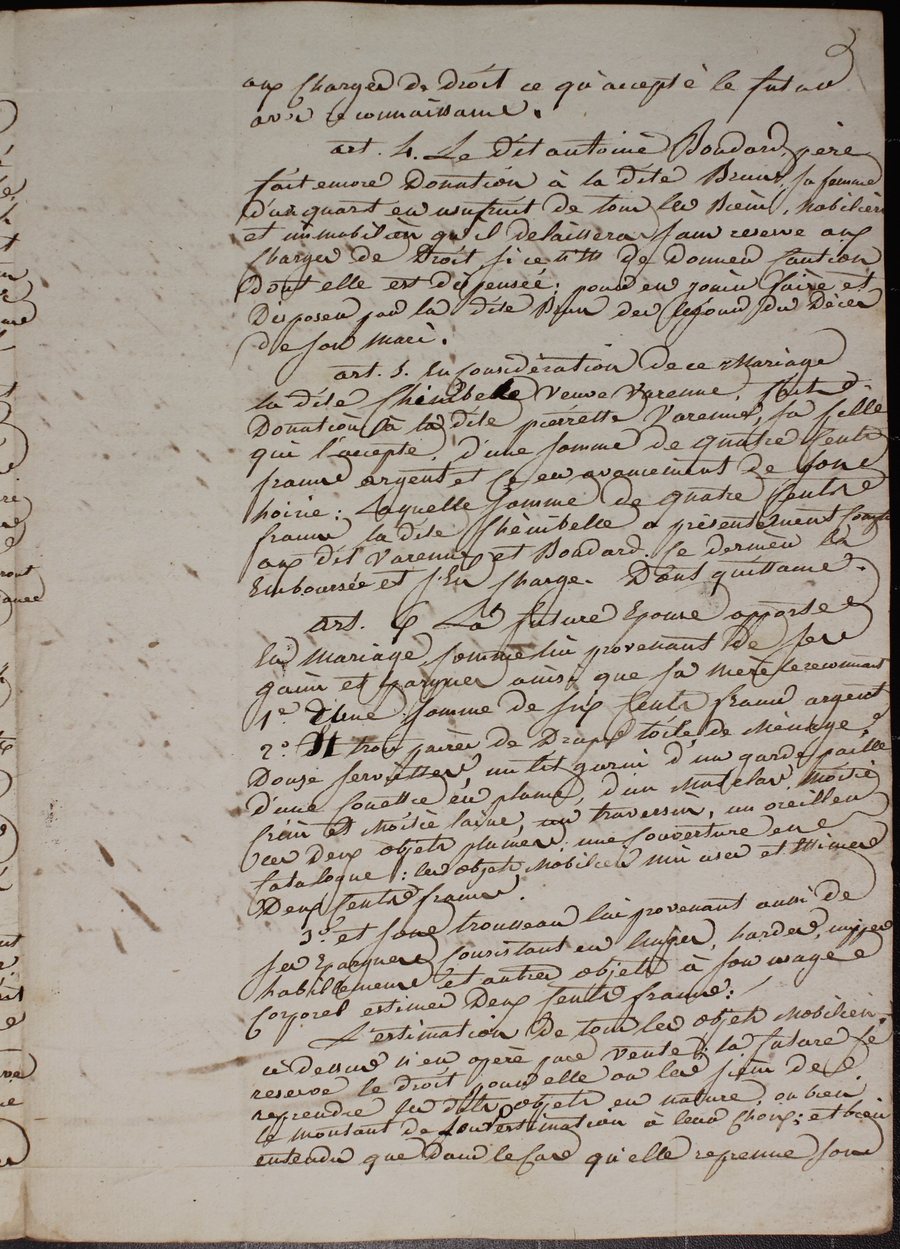 aux charges de droit ce qu'accepte le futur
avec reconnaissance.
art. 4. Le dit antoine Boudard, père
fait encore Donation à la dite Brun, sa femme
d'un quart en usufruit de tous les Biens, mobiliers
et immobiliers qu'il delaissera sans reserve aux
charges de Droit si ce n'est de donner Caution
dont elle est dispensée; pour en jouir faire et
Disposer par la dite Brun des le jour du Décès
de son mari.
art. 5. En Considération de ce Mariage
la dite Chenebelle veuve varenne, fait
Donation à la dite pierrette Varenne, sa fille
qui l'accepte, d'une somme de quatre Cents
francs argent et ce en avancement de son
hoirie; Laquelle somme de quatre Cents
francs la dite Chenibelle a présentement Compté
aux dits Varenne et Boudard. Ce dernier l'a
Emboursée et s'En Charge. Dont quittance.
art. 6 La future Epouse apporte
En Mariage Comme lui provenant de ses
gains et Epargnes ainsi que sa mère le reconnait
1.º Une Somme de six Cents francs argent
2.º Et trois paires de Draps toile de Ménage,
Douze serviettes, un lit garni d'un garde paille
d'une Couette en plume, d'un Matelas, Moitié
Crin et Moitié laine, un traversin, un oreiller
ces deux objets plumes, une Couverture en
Catalogne; les objets Mobiliers mis uses et Estimes
Deux Cents francs.
3.º et son trousseau lui provenant aussi de
ses Epargnes Consistant en linges, hardes, nippes
habillements et autres objets à son usage
Corporel estimes Deux Cents francs;
L'estimation de tous les objets Mobiliers
ci dessus n'en opère pas vente; la future se
reserve le droit pour elle ou les siens de
reprendre ses dits objets en nature, ou bien
le montant de leur estimation à leur choix; et bien
entendu que Dans le Cas qu'elle reprenne son